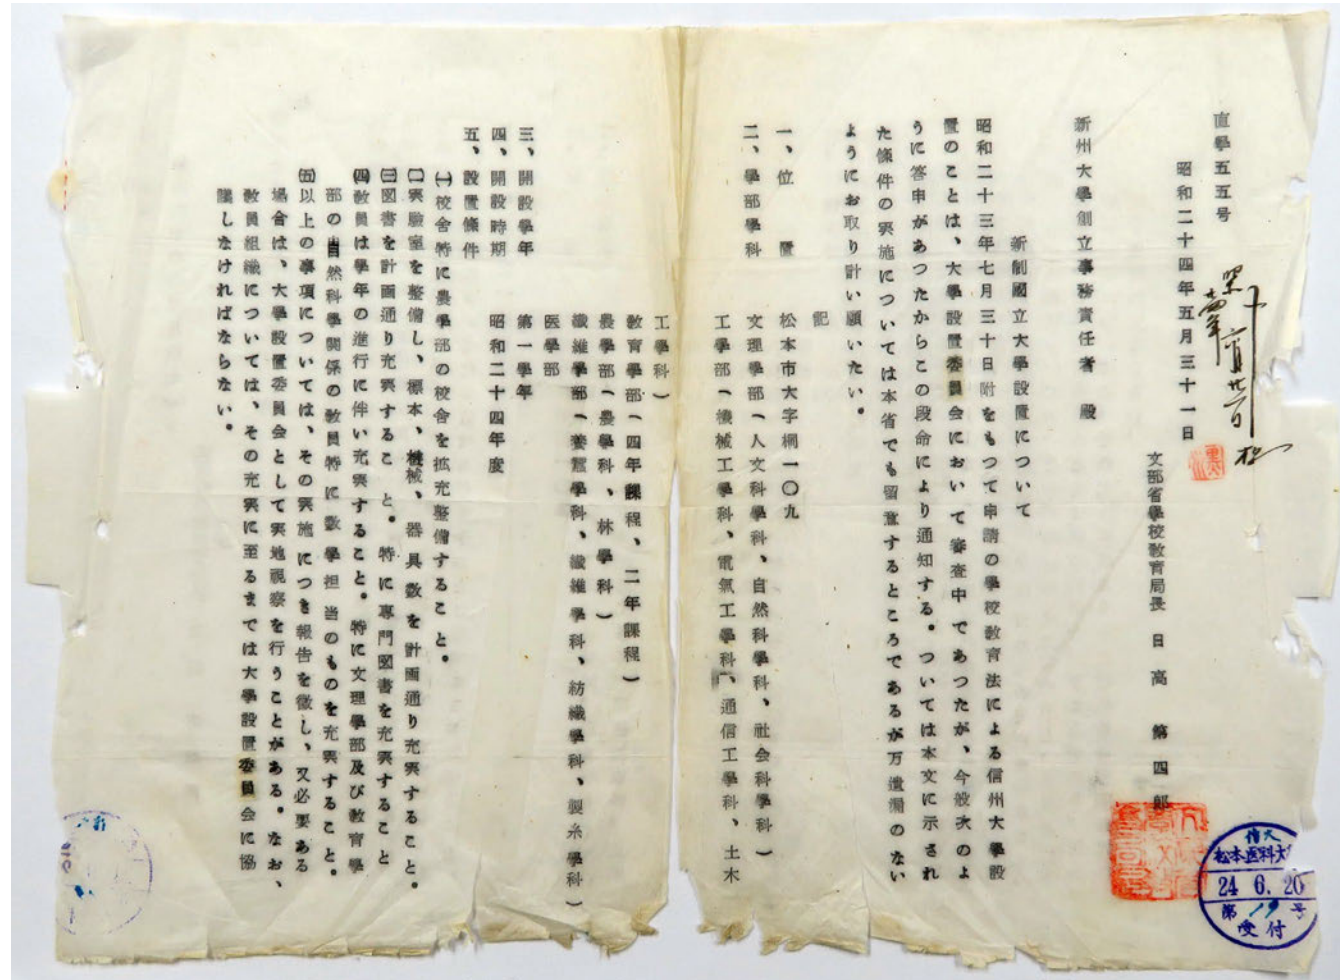 直學五五号
昭和二十四年五月三十一日
文部省學校敎育局長 日高 第四郞
新州大學創立事務責任者 殿
新制國立大學設置について
昭和二十三年七月三十日附をもつて申請の學校敎育法による信州大學設
置のことは、大學設置委員会において審査中であつたが、今般次のよ
うに答申があつたからこの段命により通知する。ついては本文に示され
た條件の実施については本省でも留意するところであるが万遺漏のない
ようにお取り計い願いたい。
記
一、位置 松本市大字桐一〇九
二、學部學科 文理學部(人文科學科、自然科學科、社会科學科)
工學部(機械工學科、電氣工學科、通信工學科、土木
工學科)
敎育學部(四年課程、二年課程)
農學部(農學科、林學科)
纎維學部(養蚕學科、纎維學科、紡織學科、製糸學科)
医學部
三、開設學年 第一學年
四、開設時期 昭和二十四年度
五、設置條件
㈠校舎特に農學部の校舎を拡充整備すること。
㈡実驗室を整備し、標本、機械、器具数を計画通り充実すること。
㈢図書を計画通り充実すること。特に専門図書を充実すること
㈣敎員は學年の進行に伴い充実すること。特に文理學部及び敎育學
部の自然科學関係の敎員特に数學担当のものを充実すること。
㈤以上の事項については、その実施につき報告を徴し、又必要ある
場合は、大學設置委員会として実地視察を行うことがある。なお、
敎員組織については、その充実に至るまでは大學設置委員会に協
議しなければならない。
信大
松本医科大
24 6. 20
第19号
受付